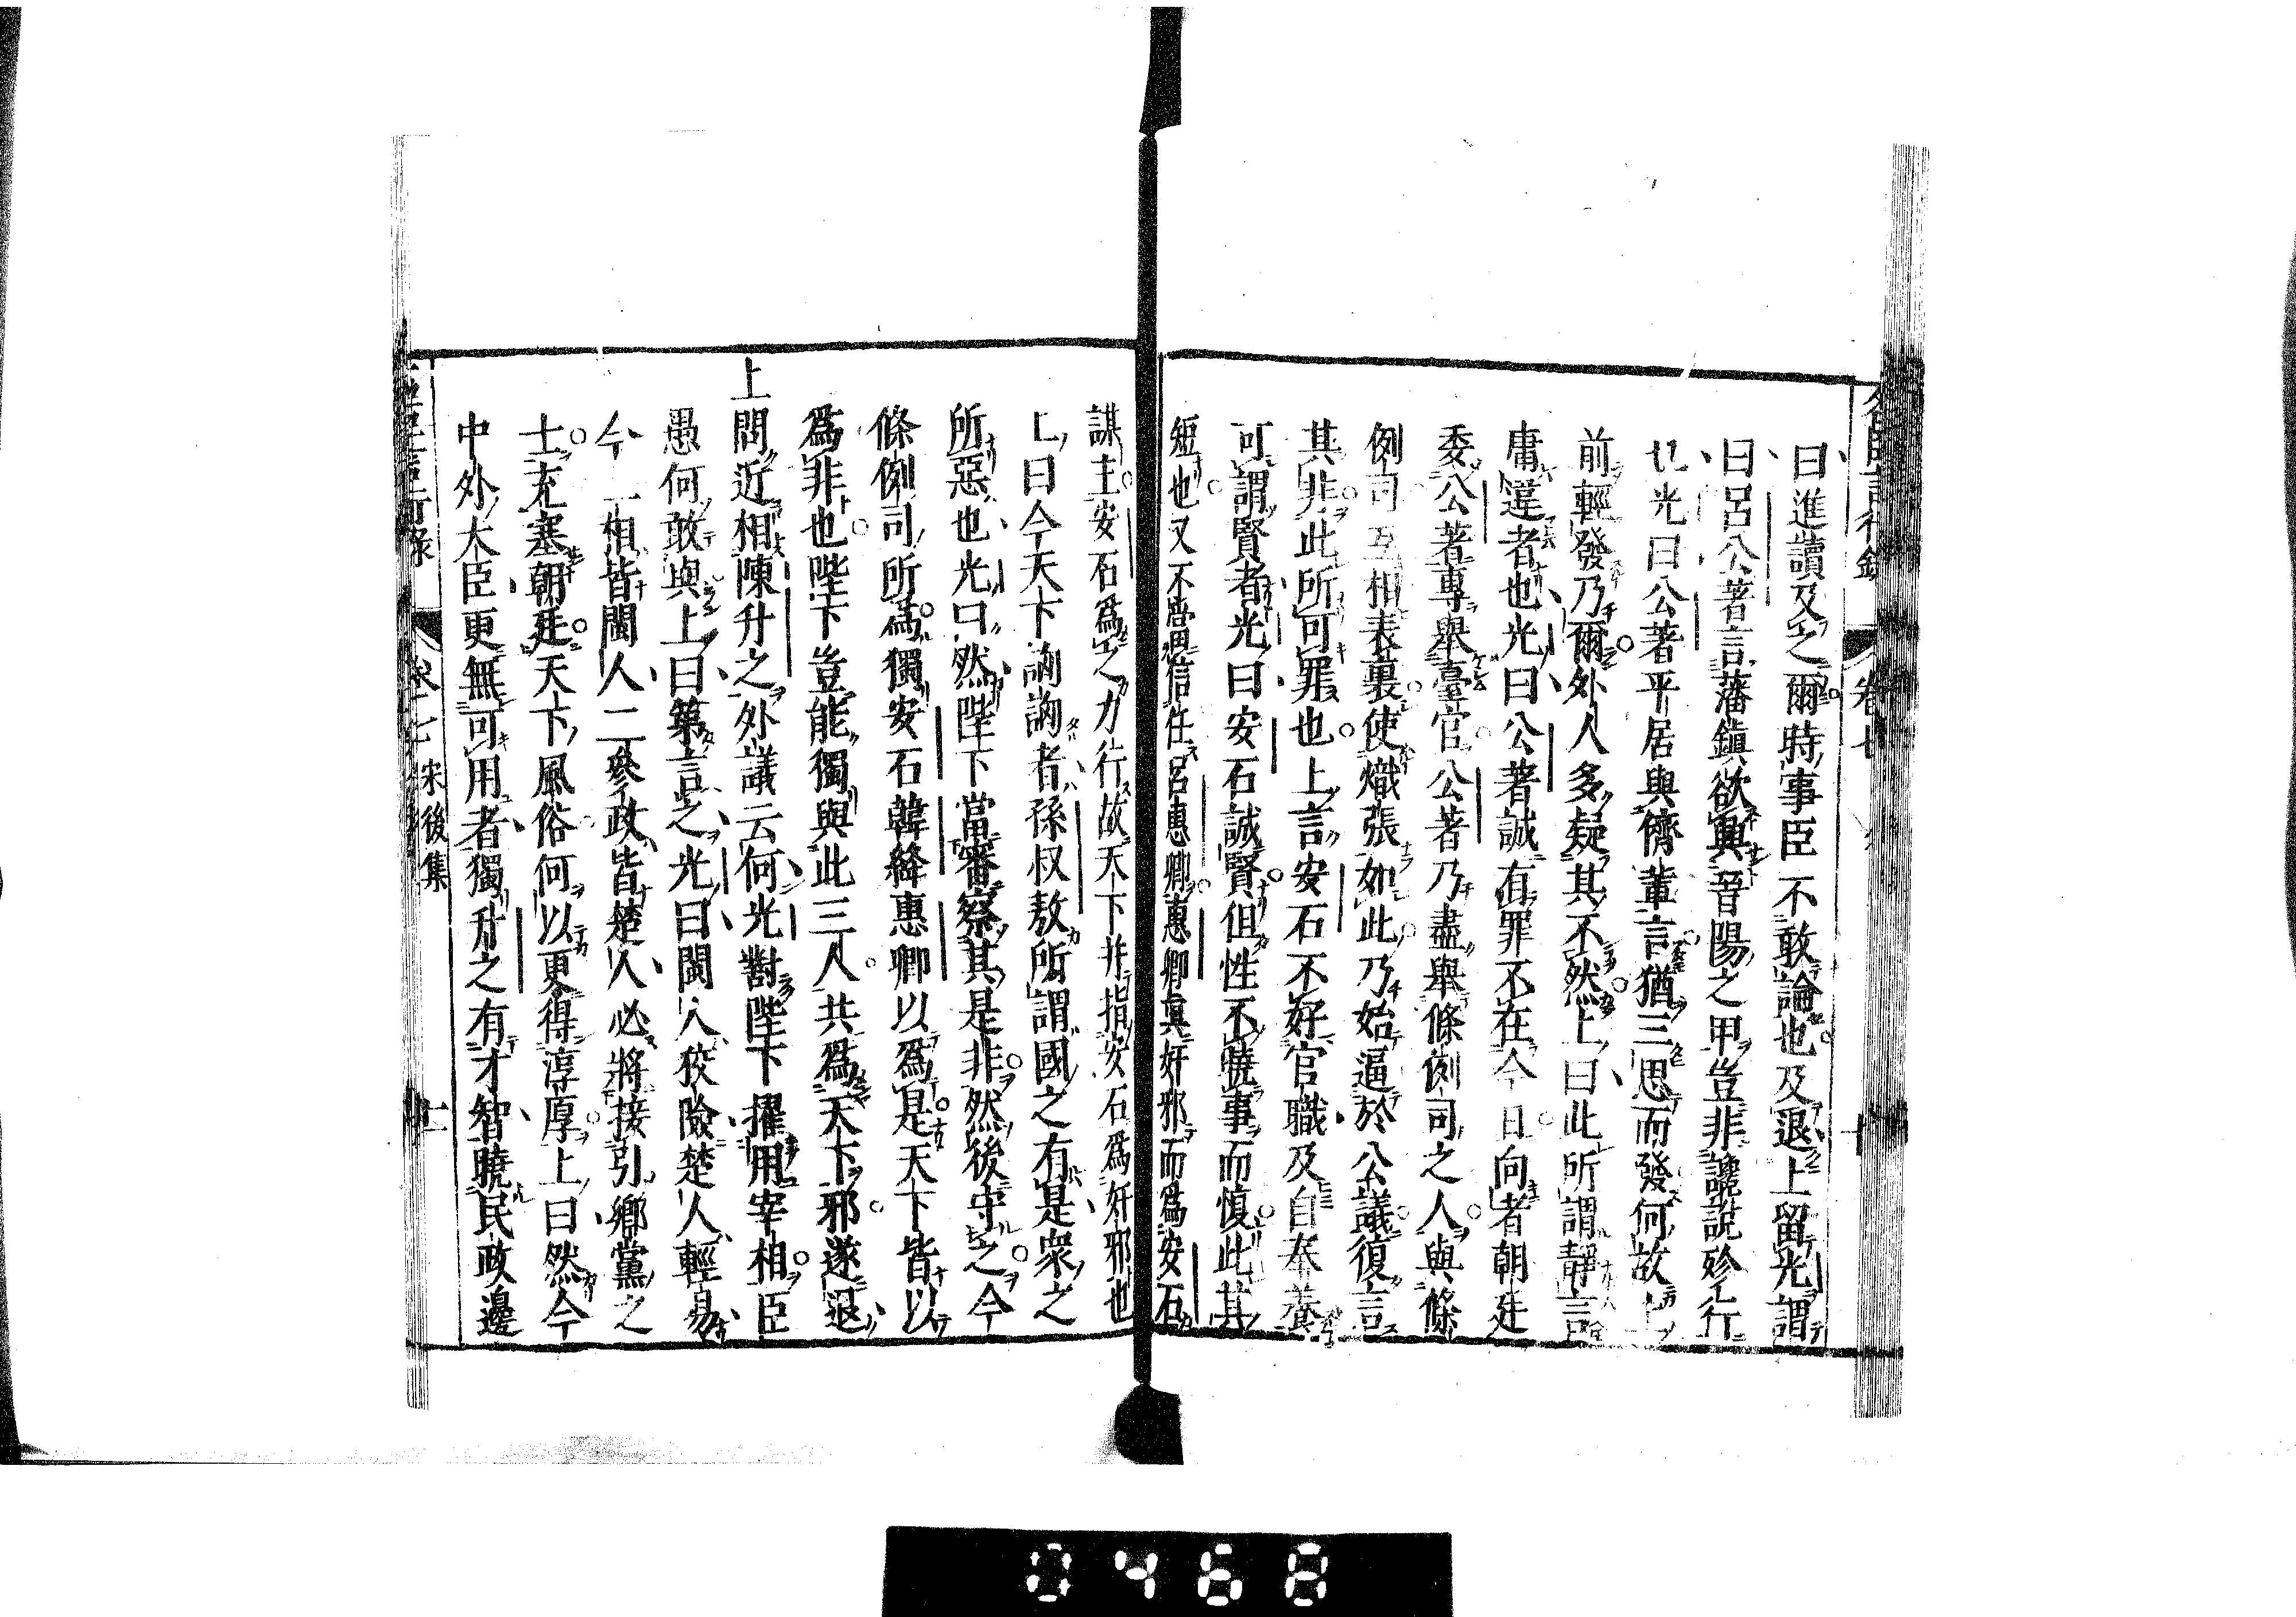 曰進讀及之爾時事臣不敢論也及退上留光謂
曰呂公著言藩鎮欲興晉陽之甲豈非讒說殄行
也光曰公著平居與儕輩言猶三思而發何故上
前輕發乃爾外人多疑其不然上曰此所謂靜言
庸違者也光曰公著誠有罪不在今日向者朝廷
委公著專舉臺官公著乃盡舉條例司之人與條
例司互相表裏使熾張如此乃始逼於公議復言
其非此所可罪也上言安石不好官職及自奉養
可謂賢者光曰安石誠賢但性不曉事而愎此其
短也又不當信任呂惠卿惠卿真奸邪而為安石
謀主安石為之力行故天下并指安石為奸邪也
上曰今天下詾詾者孫叔敖所謂國之有是眾之
所惡也光曰然陛下當審察其是非然後守之今
條例司所為獨安石韓絳惠卿以為是天下皆以
為非也陛下豈能獨與此三人共為天下邪遂退
上問近相陳升之外議云何光對陛下擢用宰相臣
愚何敢與上曰第言之光曰閩人狡險楚人輕易
今二相皆閩人二參政皆楚人必將援引鄉黨之
士充塞朝廷天下風俗何以更得淳厚上曰然今
中外大臣更無可用者獨升之有才智曉民政邊
卷七
宋後集